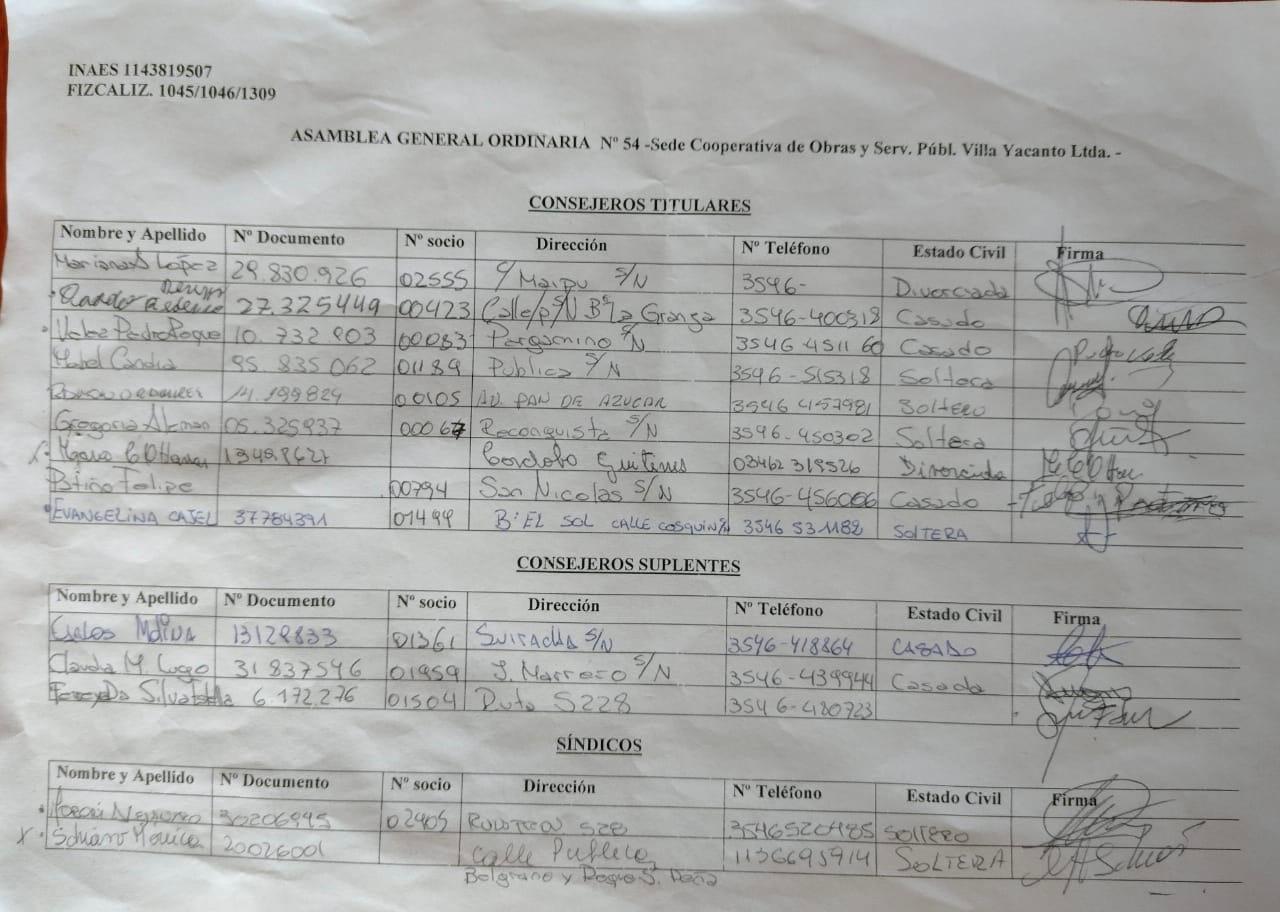 INAES 1143819507
FIZCALIZ. 1045/1046/1309
ASAMBLEA GENERAL ORDINARIA Nº 54 -Sede Cooperativa de Obras y Serv. Públ. Villa Yacanto Ltda. -
CONSEJEROS TITULARES
Nombre y Apellido Nº Documento Nº socio Dirección Nº Teléfono Estado Civil Firma
López 29.830.926 02555 C/ Maipu S/N 3546- Divorciada
27.325449 00423 Calle/p S/N Bº La Granga 3546-400318 Casado
Velez Pedro Roque 10.732.803 00083 Pergamino S/N 3546 4511 60 Casado
Mabel Candia 95 835 062 01189 Publica S/N 3546-515318 Soltera
14.199824 00105 AV. PAN DE AZUCAR 3546 457981 SOLTERO
Gregoria 05.325937 00067 Reconquista S/N 3546-450302 Soltera
Cordoba 03462 319526 Divorciada
Patiño Felipe 00794 San Nicolas S/N 3546-456006 Casado
EVANGELINA 37784391 01499 Bº EL SOL CALLE COSQUIN 3546 531182 SOLTERA
CONSEJEROS SUPLENTES
Nombre y Apellido Nº Documento Nº socio Dirección Nº Teléfono Estado Civil Firma
Carlos Molina 13129833 01361 SUIPACHA S/N 3546-418864 CASADO
Claudia M. Lugo 31 837546 01959 J. Marrero S/N 3546-439944 Casada
6.172.276 01504 Ruta S228 3546-480723
SÍNDICOS
Nombre y Apellido Nº Documento Nº socio Dirección Nº Teléfono Estado Civil Firma
30206945 02405 S28 3546520485 SOLTERO
Monica 20026001 Calle Publica 1136695914 SOLTERA
Belgrano y Roque S. Peña